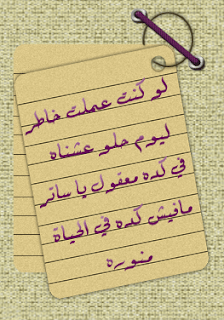 لو كنت عملت خاطر
ليوم حلو عشناه
في كده معقول يا ساتر
مافيش كده في الحياة
منوره